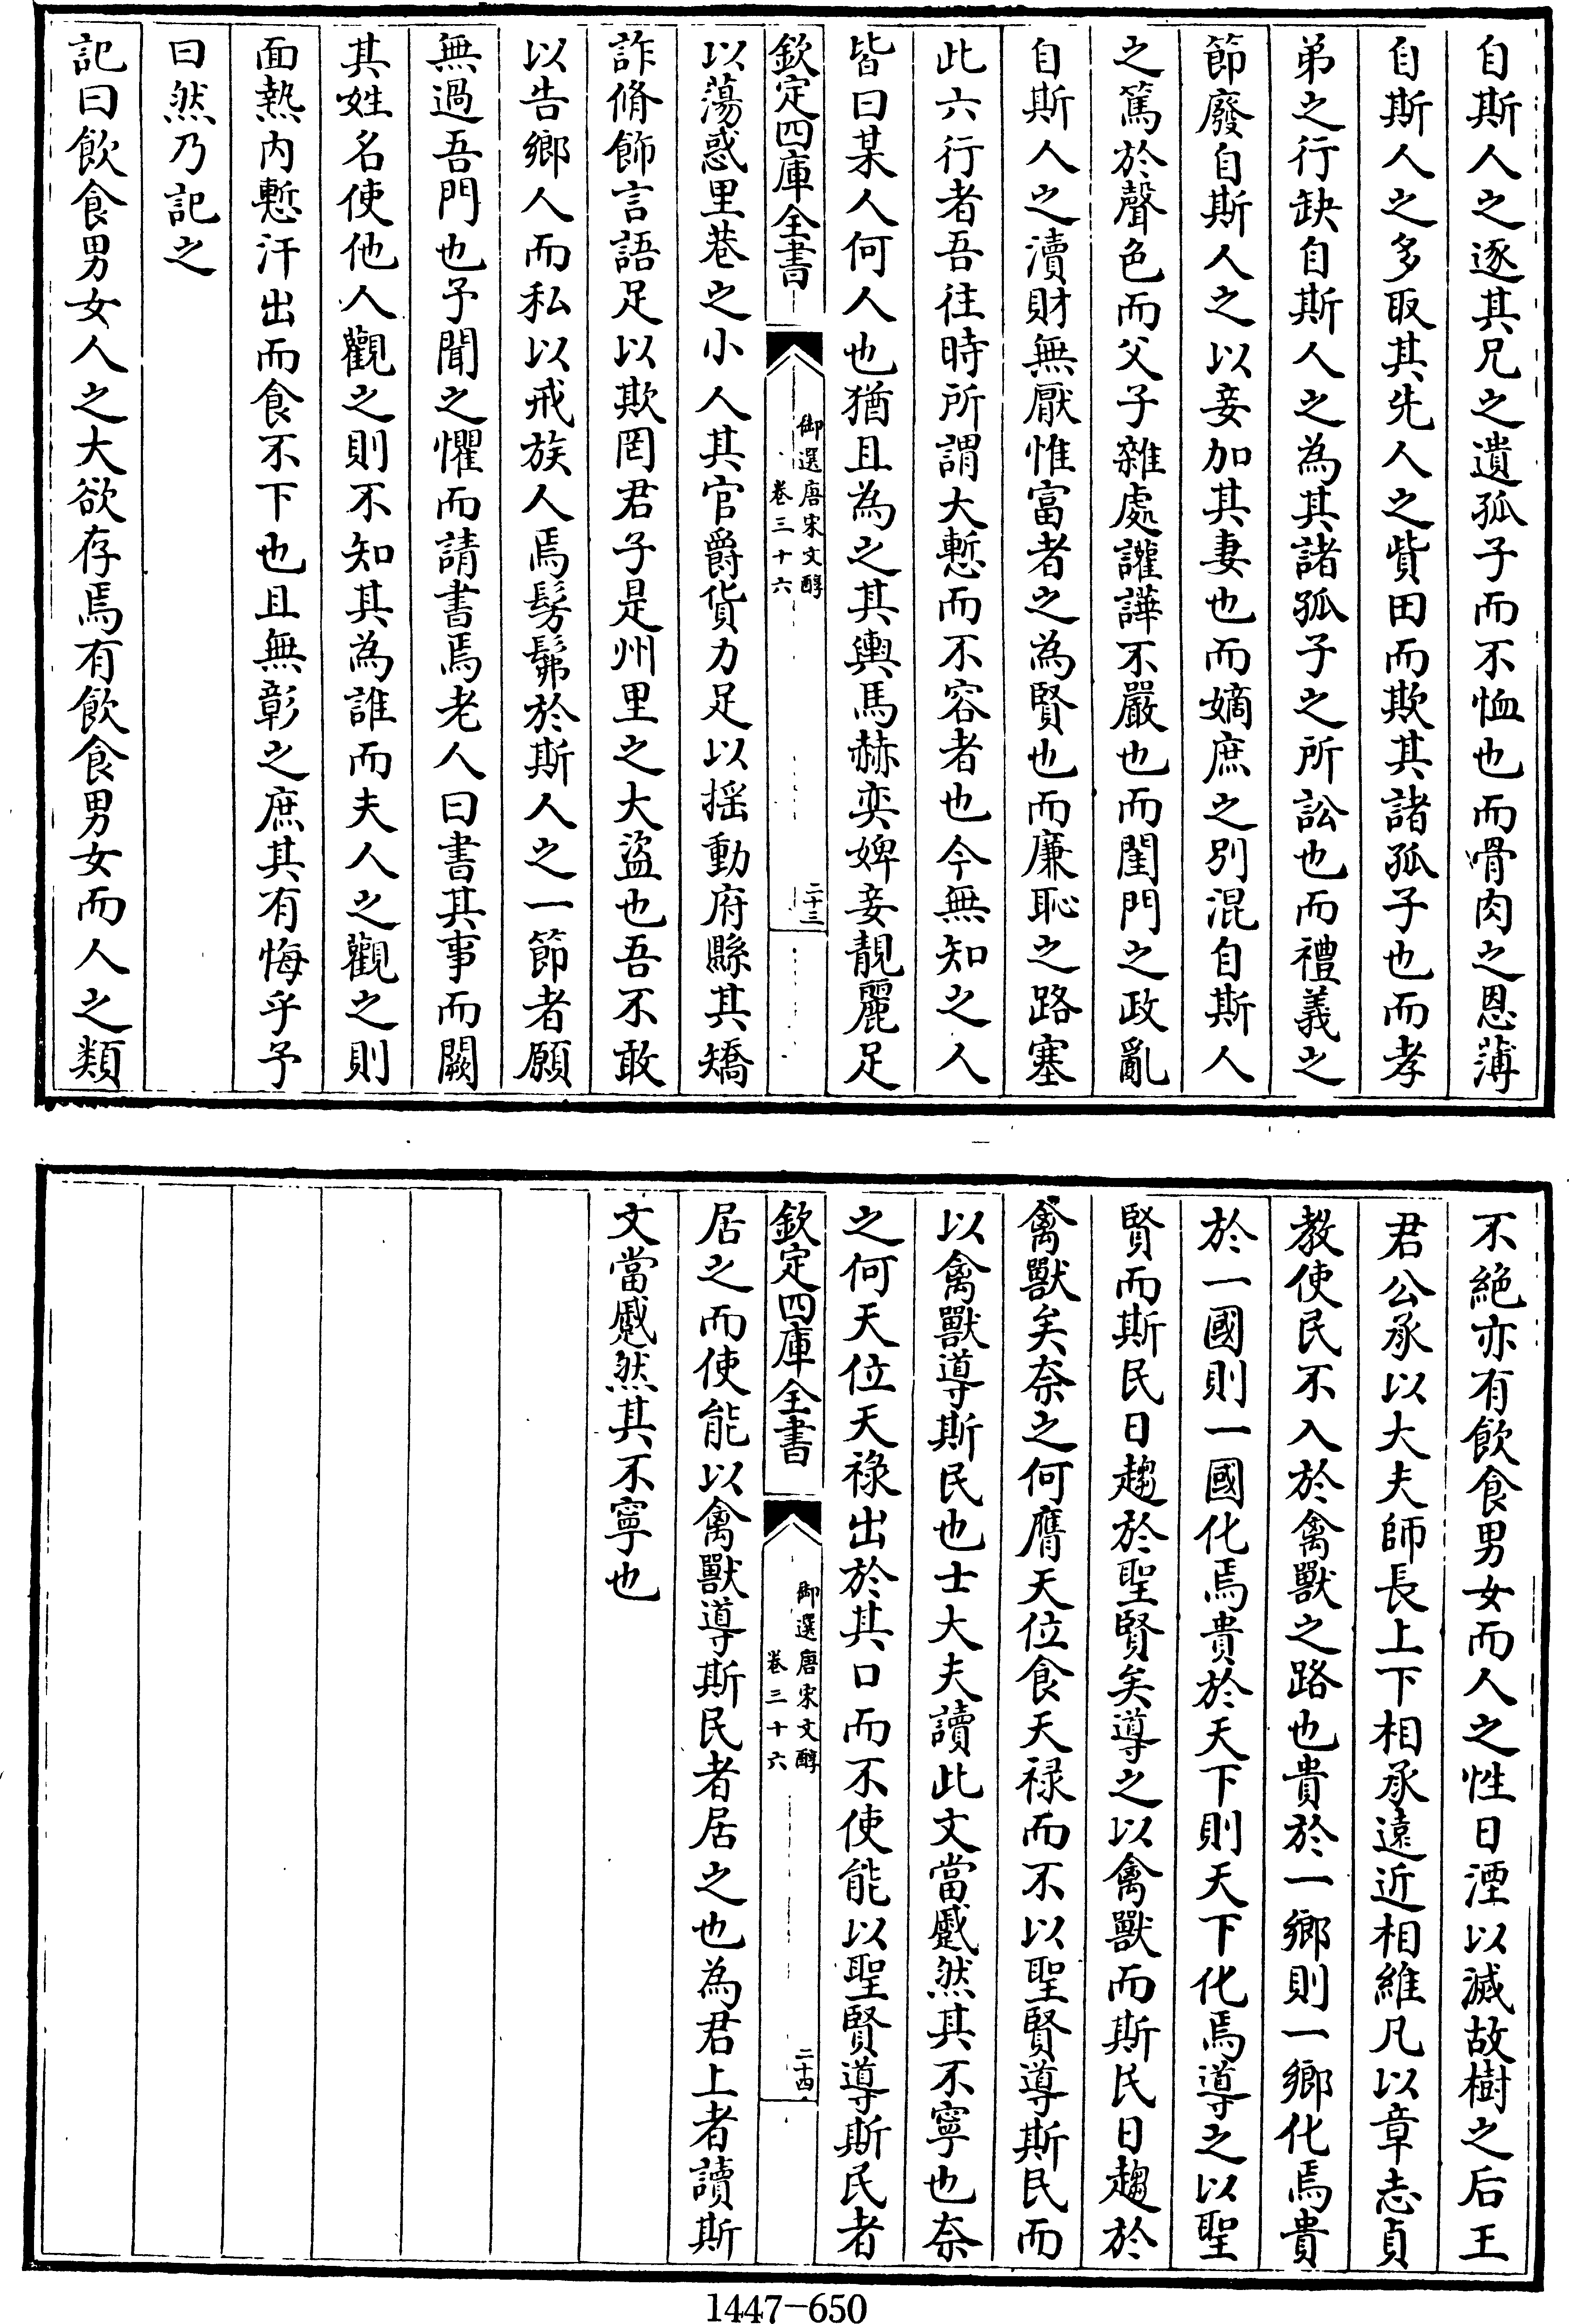 自斯人之逐其兄之遺孤子而不恤也而骨肉之恩薄
自斯人之多取其先人之貲田而欺其諸孤子也而孝
弟之行缺自斯人之為其諸孤子之所訟也而禮義之
節廢自斯人之以妾加其妻也而嫡庶之別混自斯人
之篤於聲色而父子雜處讙譁不嚴也而閨門之政亂
自斯人之瀆財無厭惟富者之為賢也而廉恥之路塞
此六行者吾往時所謂大慙而不容者也今無知之人
皆曰某人何人也猶且為之其輿馬赫奕婢妾靚麗足
欽定四庫全書
御選唐宋文醇
卷三十六
二十三
以蕩惑里巷之小人其官爵貨力足以揺動府縣其矯
詐脩飾言語足以欺罔君子是州里之大盜也吾不敢
以告鄉人而私以戒族人焉髣髴於斯人之一節者願
無過吾門也予聞之懼而請書焉老人曰書其事而闕
其姓名使他人觀之則不知其為誰而夫人之觀之則
面熱内慙汗出而食不下也且無彰之庶其有悔乎予
曰然乃記之
記曰飲食男女人之大欲存焉有飲食男女而人之類
不絕亦有飲食男女而人之性日湮以滅故樹之后王
君公承以大夫師長上下相承遠近相維凡以章志貞
教使民不入於禽獸之路也貴於一鄉則一鄉化焉貴
於一國則一國化焉貴於天下則天下化焉導之以聖
賢而斯民日趨於聖賢矣導之以禽獸而斯民日趨於
禽獸矣奈之何膺天位食天禄而不以聖賢導斯民而
以禽獸導斯民也士大夫讀此文當蹙然其不寧也奈
之何天位天祿出於其口而不使能以聖賢導斯民者
欽定四庫全書
御選唐宋文醇
卷三十六
二十四
居之而使能以禽獸導斯民者居之也為君上者讀斯
文當蹙然其不寧也
1447-650